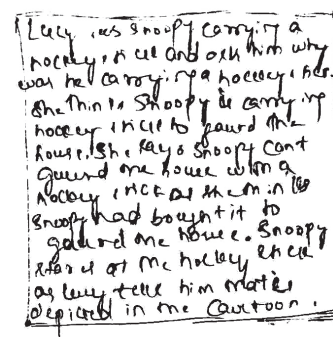 Lucy sees Snoopy carrying a
hockey stick and ask him why
was he carrying a hockey stick.
She thinks Snoopy is carrying
hockey stick to gaurd the
house. She says Snoopy cant
guard the house with a
hockey stick as she thinks
Snoopy had bought it to
gaurd the house. Snoopy
stares at the hockey stick
as lucy tells him that is
depicted in the Cartoon.